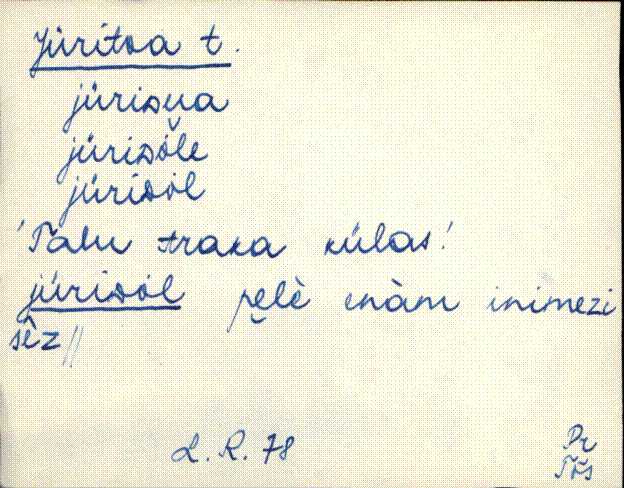 Jüritsa t.
jürisu̯a
jürisǒle
jürisòl
'Talu traka külas'
jürisòl pe̮lè enàm inimezi
sêz //
L. R. 78
Pr
Tõs